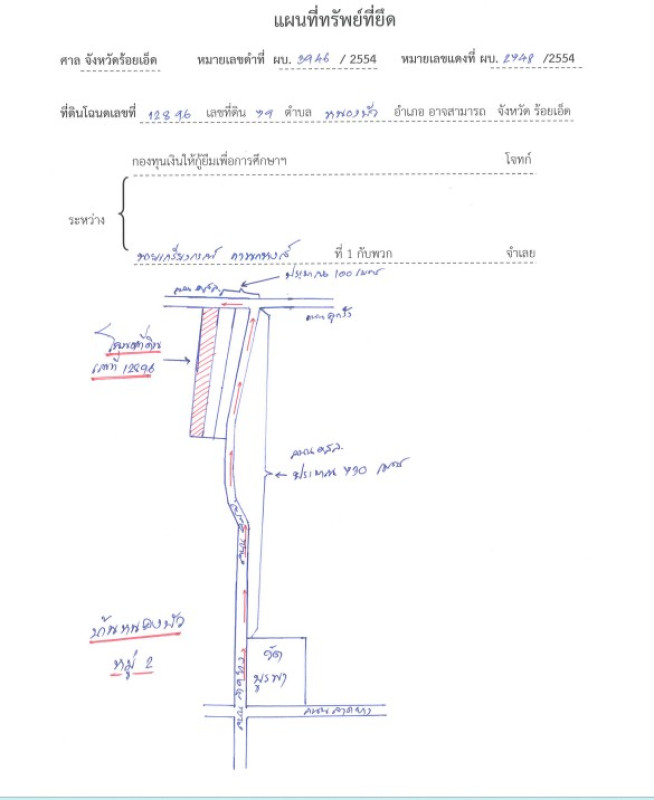 แผนที่ทรัพย์ที่ยึด
ศาล จังหวัดร้อยเอ็ด หมายเลขดำที่ ผบ. 2946 / 2554 หมายเลขแดงที่ ผบ. 2748 /2554
ที่ดินโฉนดเลขที่ 12896 เลขที่ดิน 79 ตำบล หนองบัว อำเภอ อาจสามารถ จังหวัด ร้อยเอ็ด
กองทุนเงินให้กู้ยืมเพื่อการศึกษาฯ โจทก์
ระหว่าง
ที่ 1 กับพวก จำเลย
ประมาณ 100 เมตร
ถนน คสล.
ถนนลูกรัง
โฉนดที่ดิน
เลขที่ 12896
ถนน คสล.
ประมาณ 790 เมตร
บ้านหนองบัว
หมู่ 2
วัด
บูรพา
ถนนลาดยาง
ถนนลาดยาง